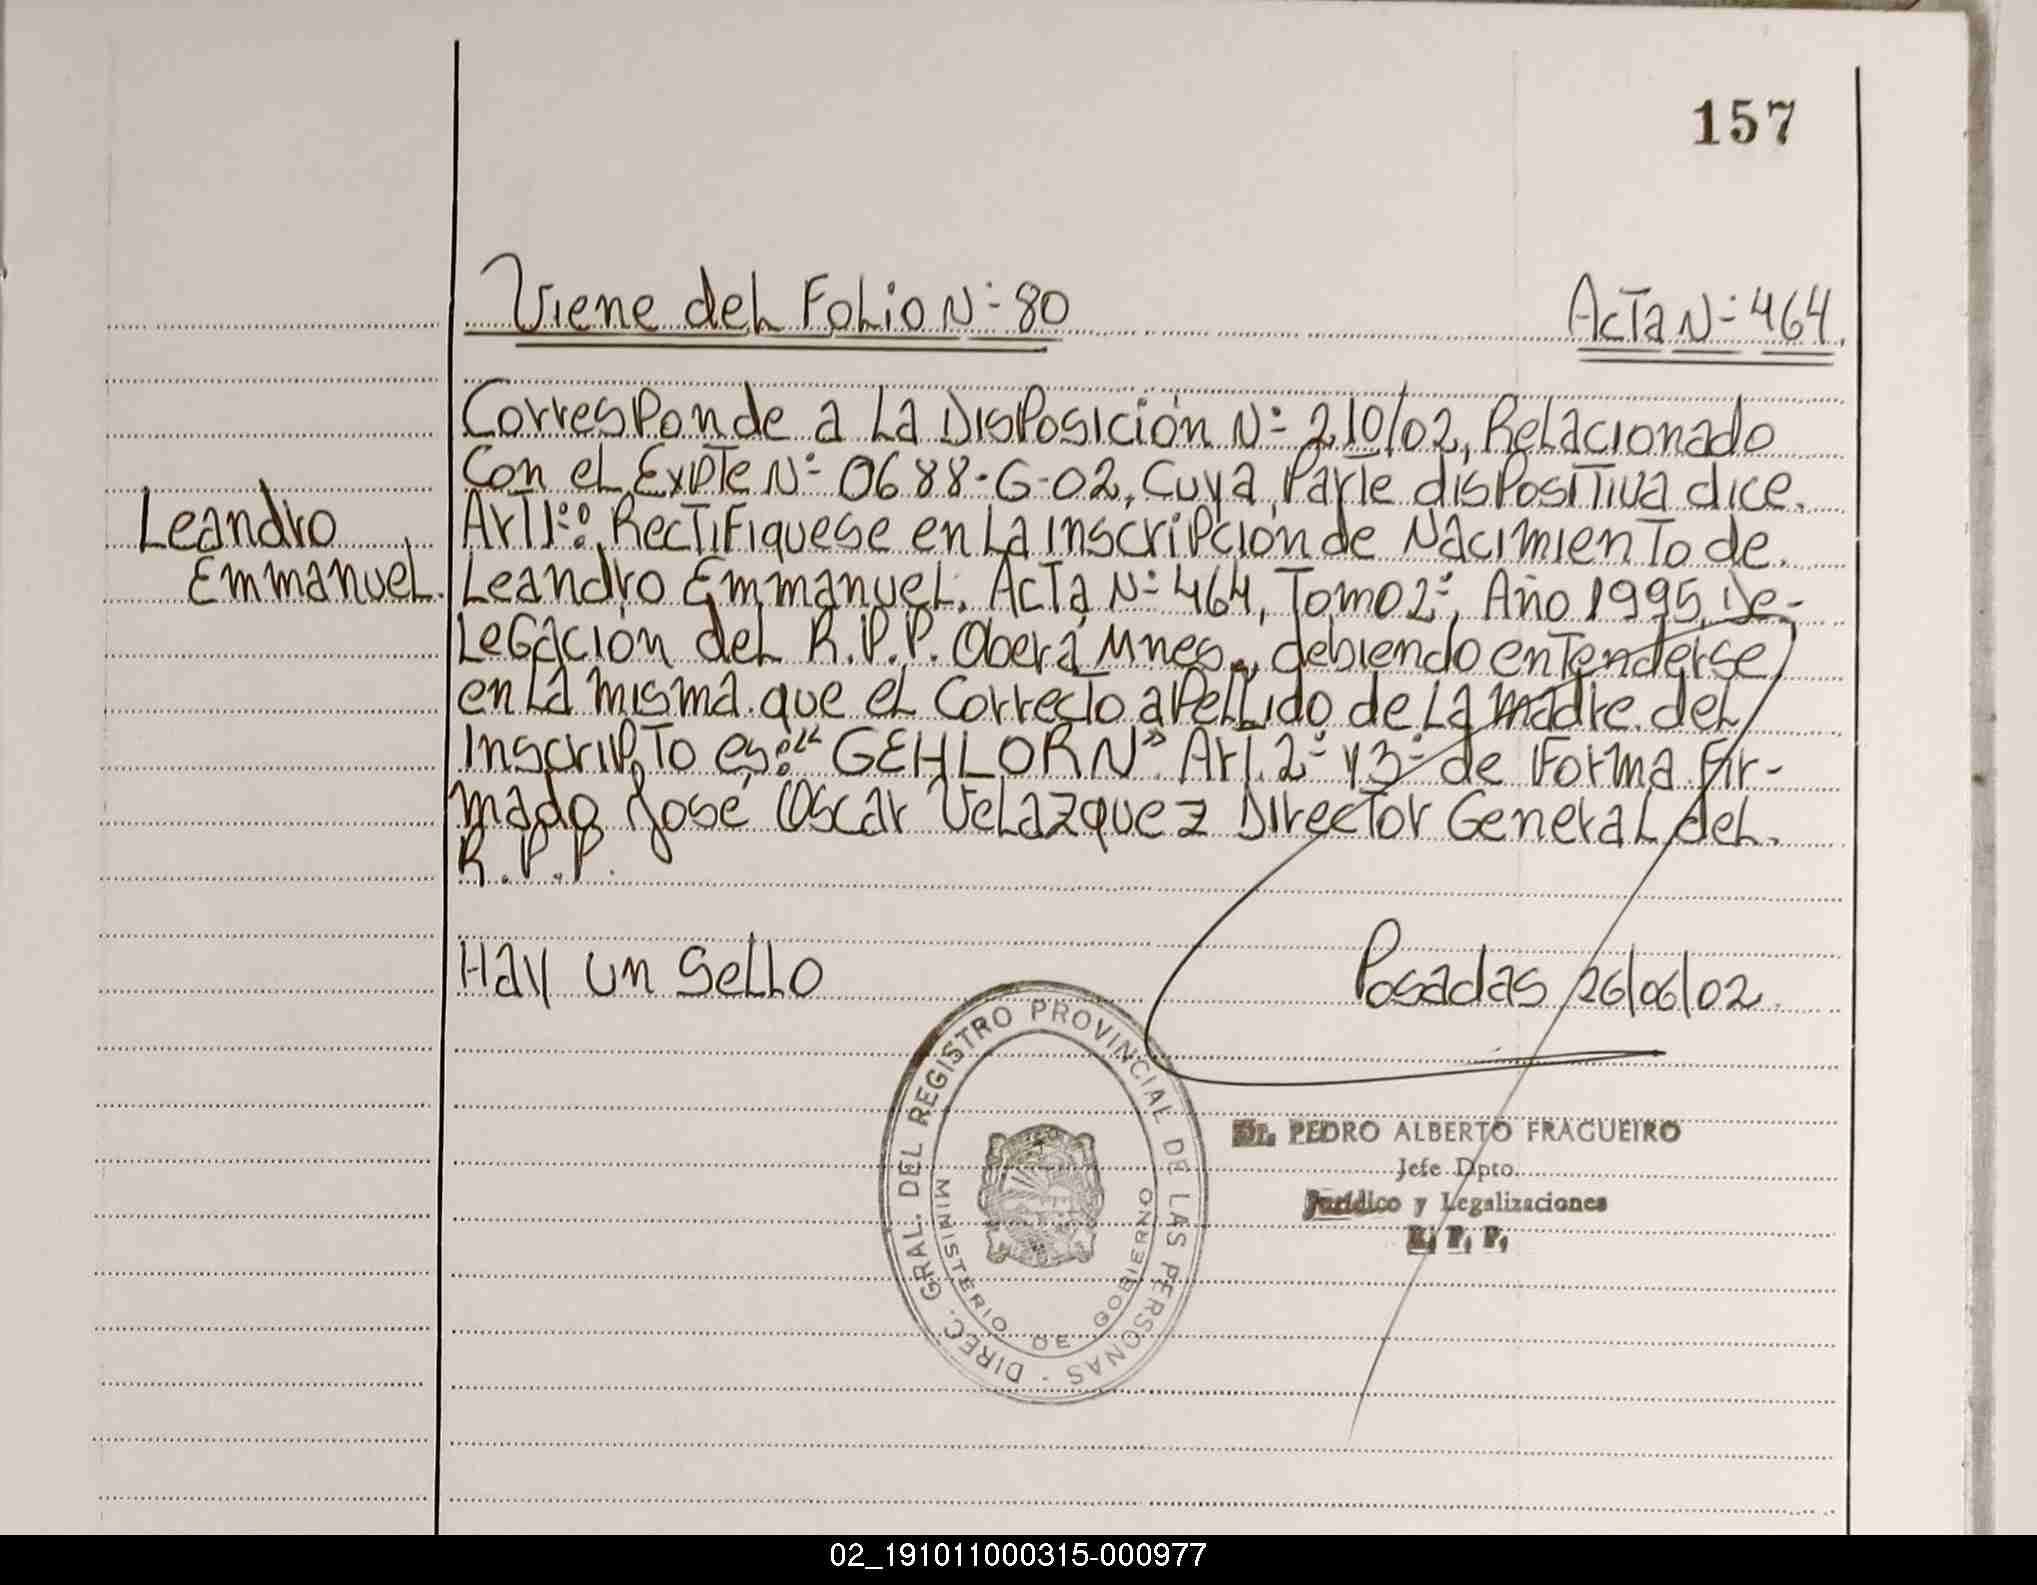 157
Viene del Folio Nº 80
Acta Nº 464.
Corresponde a la Disposición Nº 210/02, Relacionado
con el Expte Nº 0688-G-02, cuya parte dispositiva dice.
Leandro
Emmanuel.
Art 1º: Rectifiquese en la inscripción de Nacimiento de.
Leandro Emmanuel. Acta Nº 464, Tomo 2º, Año 1995, De-
legación del R.P.P. Oberá Mnes., debiendo entenderse
en la misma que el correcto apellido de la madre del
Inscripto es: "GEHLORN". Art. 2º y 3º de forma Fir-
mado José Oscar Velazquez Director General del.
R.P.P.
Hay un sello
Posadas 26/06/02.
DIREC. GRAL. DEL REGISTRO PROVINCIAL DE LAS PERSONAS -
MINISTERIO DE GOBIERNO
Dr. PEDRO ALBERTO FRAGUEIRO
Jefe Dpto.
Jurídico y Legalizaciones
R. P. P.
02_191011000315-000977